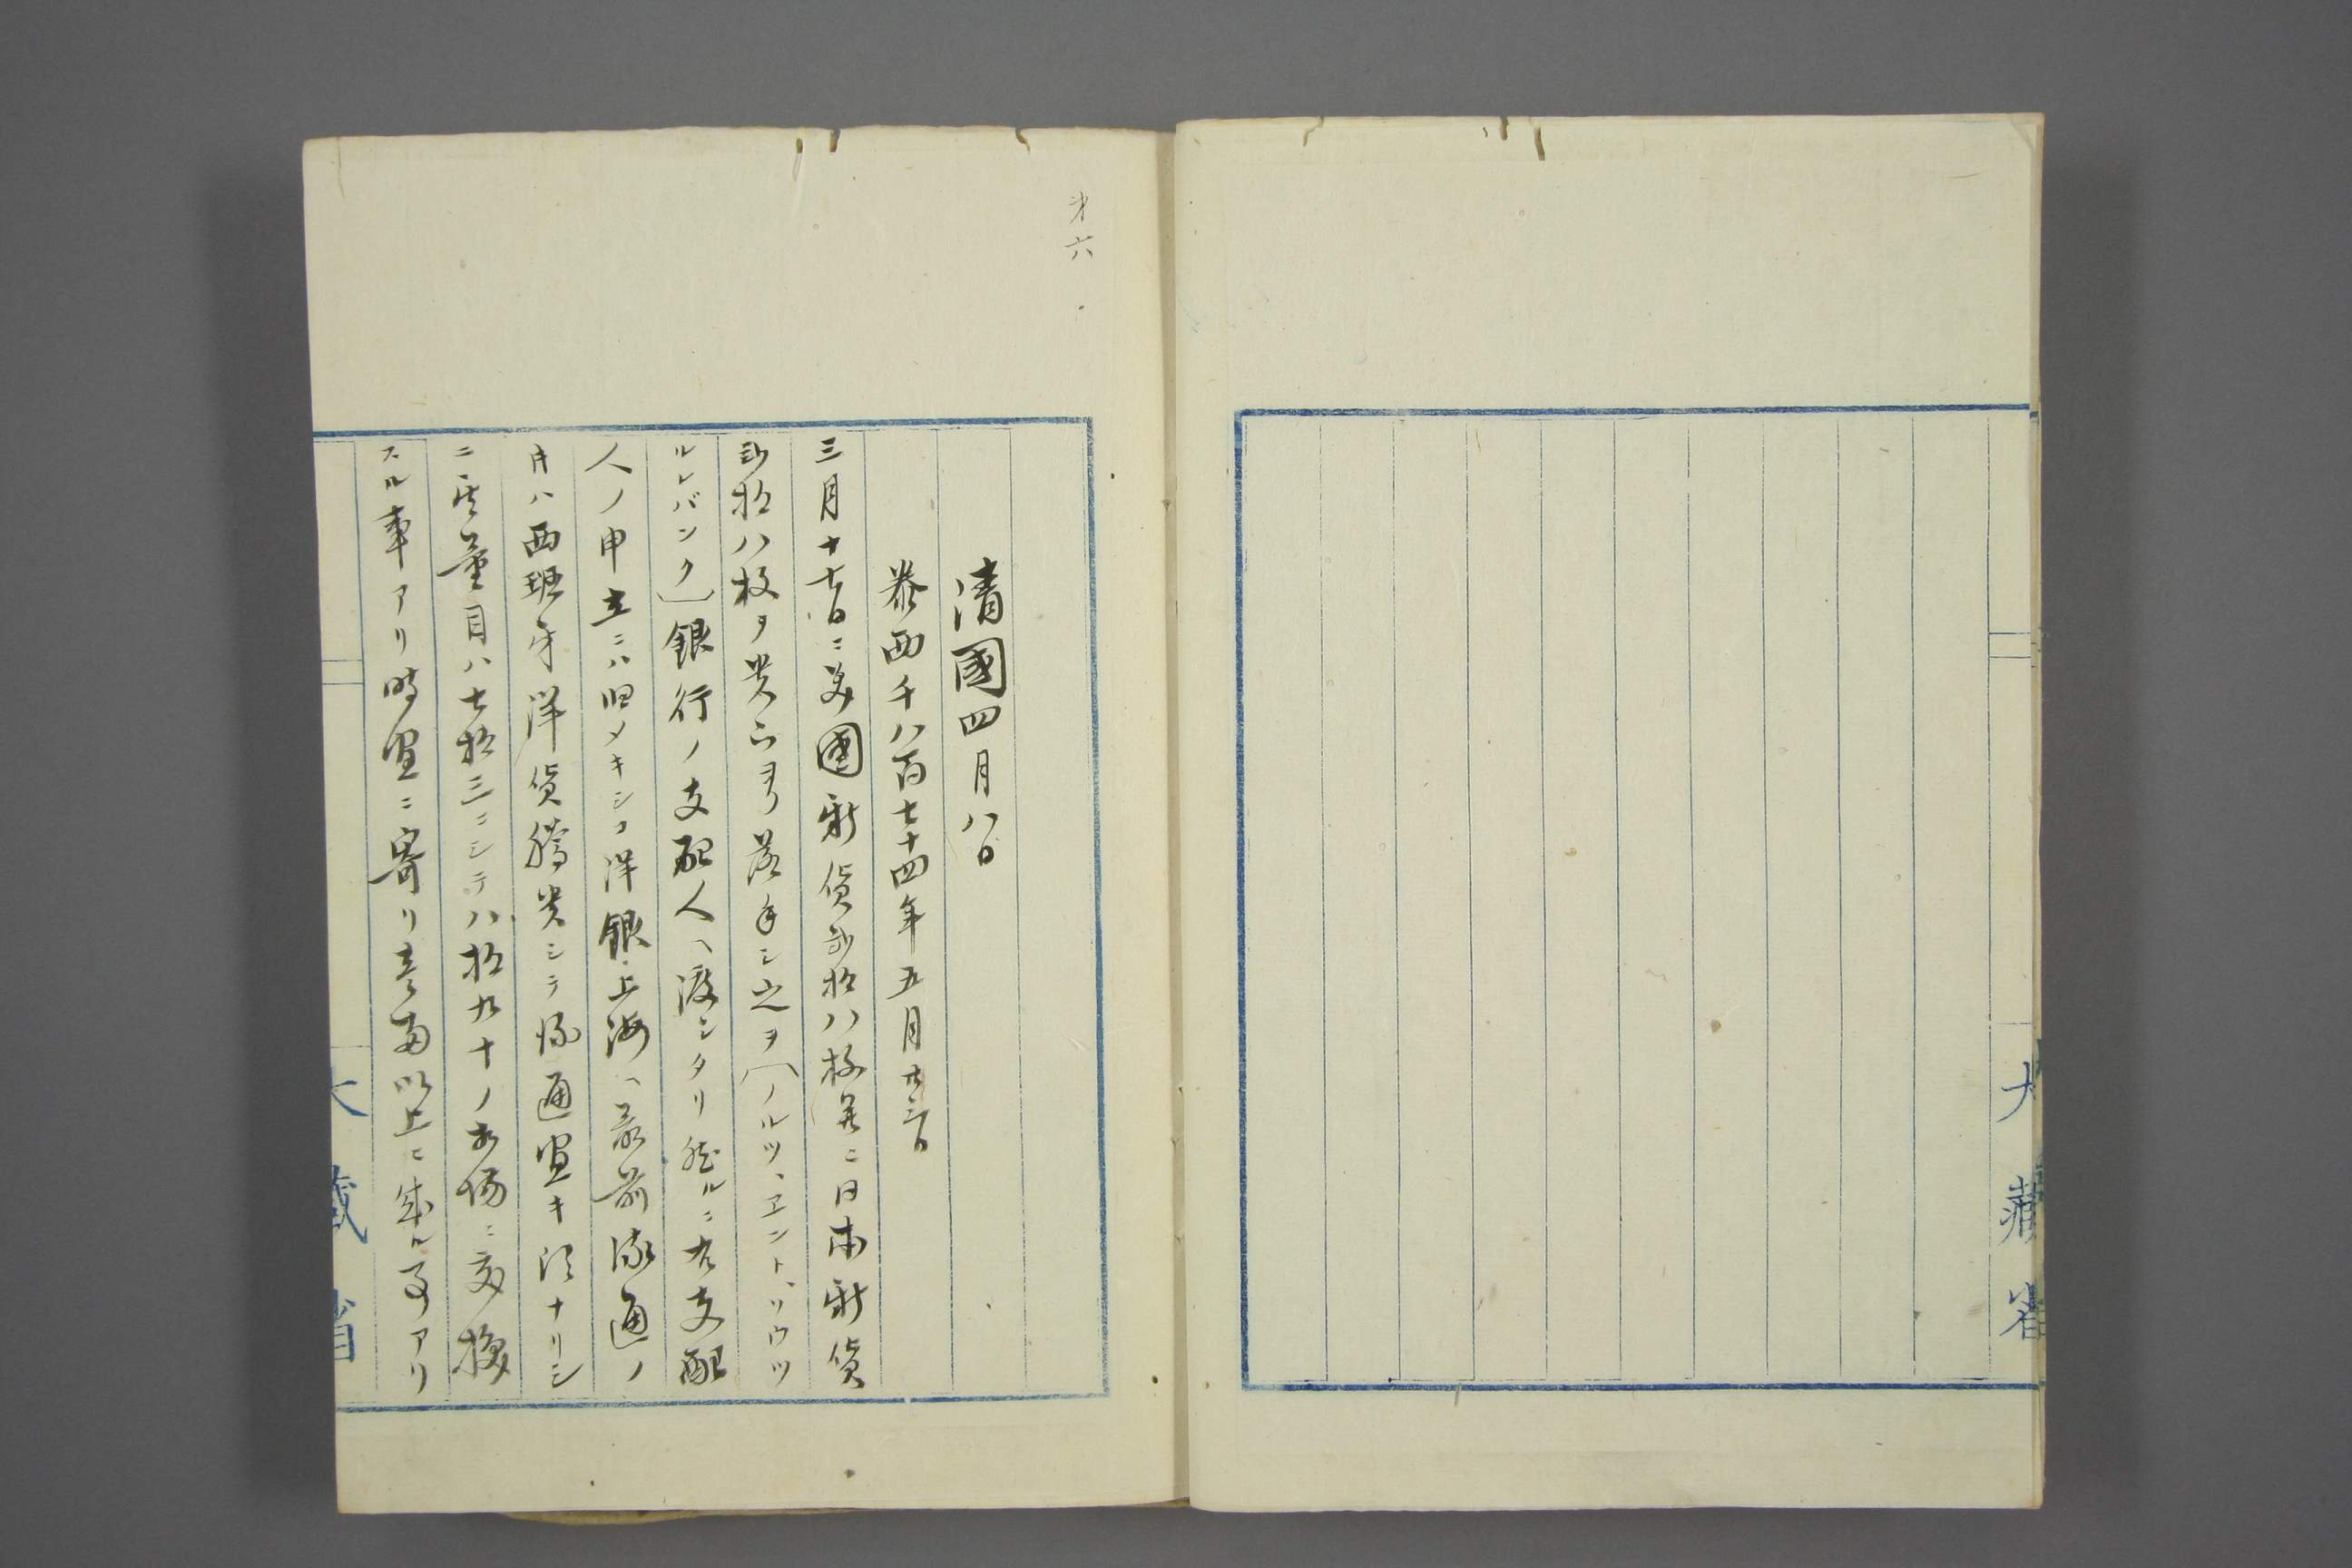 大藏省
第六
清國四月八日
泰西千八百七十四年五月廿三日
三月十七日ニ美國新貨弐拾八枚并ニ日本新貨
弐拾八枚ヲ貴下ヨリ落手シ之ヲ〔ノルツ、ヱント、ソウツ
ルレバンク〕銀行ノ支配人ヘ渡シタリ然ルニ右支配
人ノ申立ニハ旧メキシコ洋銀上海ヘ最前流通ノ
片ハ西班牙洋貨騰貴シテ流通宜キ頃ナリシ
ニ其量目ハ七拾三ニシテ八拾九十ノ相場ニ交換
スル事アリ時宜ニ寄リ壱両以上ニ至ル事アリ
大蔵省